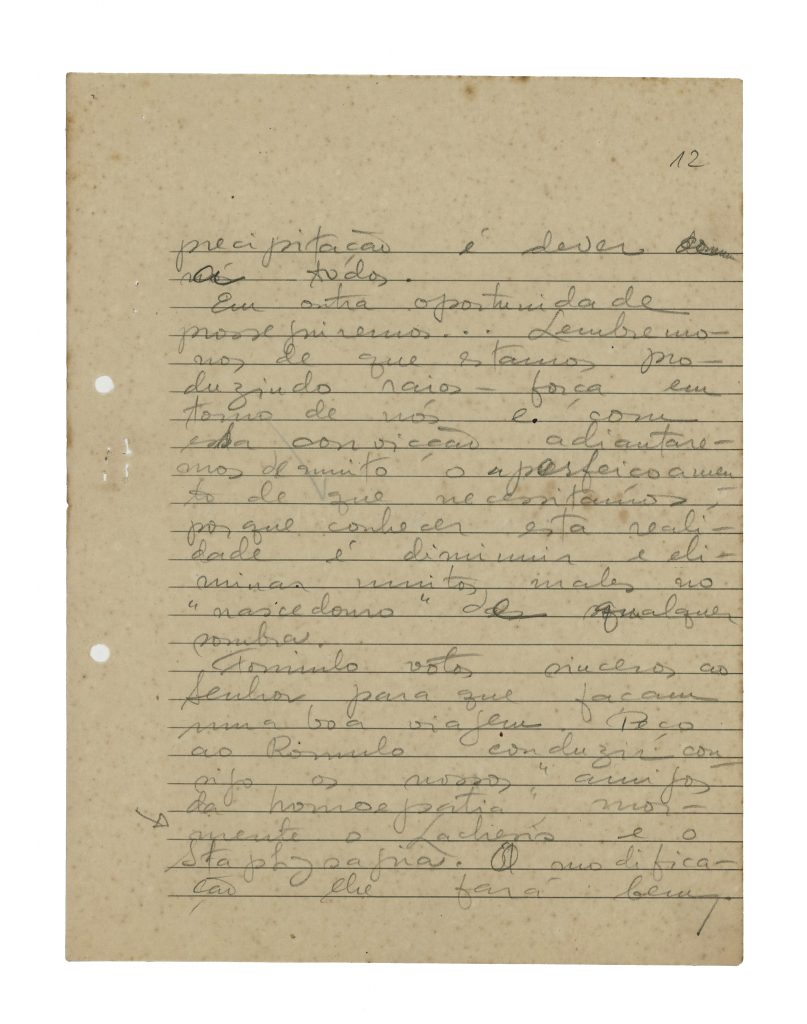 12
precipitação é dever
a todos.
Em outra oportunidade
prosseguiremos... Lembremo-
nos de que estamos pro-
duzindo raios-força em
torno de nós e, com
essa convicção adiantare-
mos de muito o aperfeiçoamen
to de que necessitamos,
porque conhecer esta reali-
dade é diminuir e eli-
minar muitos males no
"nascedouro" de qualquer
sombra.
Formulo votos sinceros ao
Senhor para que façam
uma boa viagem. Peço
ao Rômulo conduzir con
sigo os nossos "amigos
da homoepatia" mor-
mente o Lachesis e o
Staphysagria. A modifica-
ção lhe fará bem,